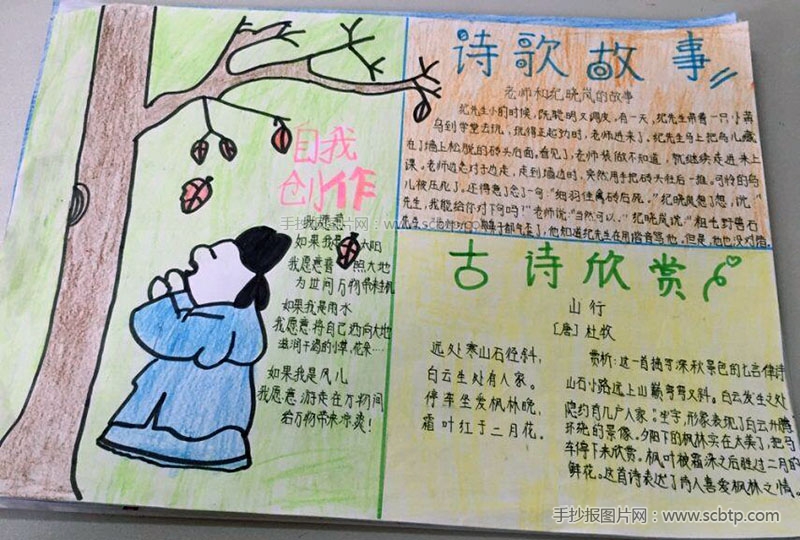 诗歌故事
老师和纪晓岚的故事
纪先生小的时候,既聪明又调皮,有一天,纪先生带着一只小
鸟到学堂去玩,玩得正起劲时,老师进来了,纪先生马上把鸟儿藏
在了墙上松脱的砖头后面。看见了,老师装做不知道,就继续走进来上
课。老师边走对于边走,走到墙边时,突然用手把砖头往后一推。可怜的鸟
儿被压死了,还得意了念了一句:“细羽佳禽砖后死。”纪晓岚想了想,说:“
先生,我能给你对下句吗?”老师说:“当然可以。”纪晓岚说:“粗毛野兽石
自我
创作
我愿意
如果我是 太阳
我愿意普 照大地
为世间万物带来
如果我是雨水
我愿意将自己洒向大地
滋润干渴的小草,花朵……
如果我是风儿
我愿意游走在万物间
给万物带来凉爽!
古诗欣赏
山行
[唐] 杜牧
远处寒山石径斜,
白云生处有人家。
停车坐爱枫林晚,
霜叶红于二月花。
赏析:这一首描写深秋景色的七言律诗
山石小路远上山巅弯弯又斜。白云发生之处
隐约有几户人家。生字,形象表现了白云升腾
环绕的景像。夕阳下的枫林实在太美了,把马
车停下来欣赏。枫叶被霜冻之后胜过二月的
鲜花。这首诗表达了诗人喜爱枫林之情。
手抄报图片网:www.scbtp.com
手抄报图片网:www.scbtp.com